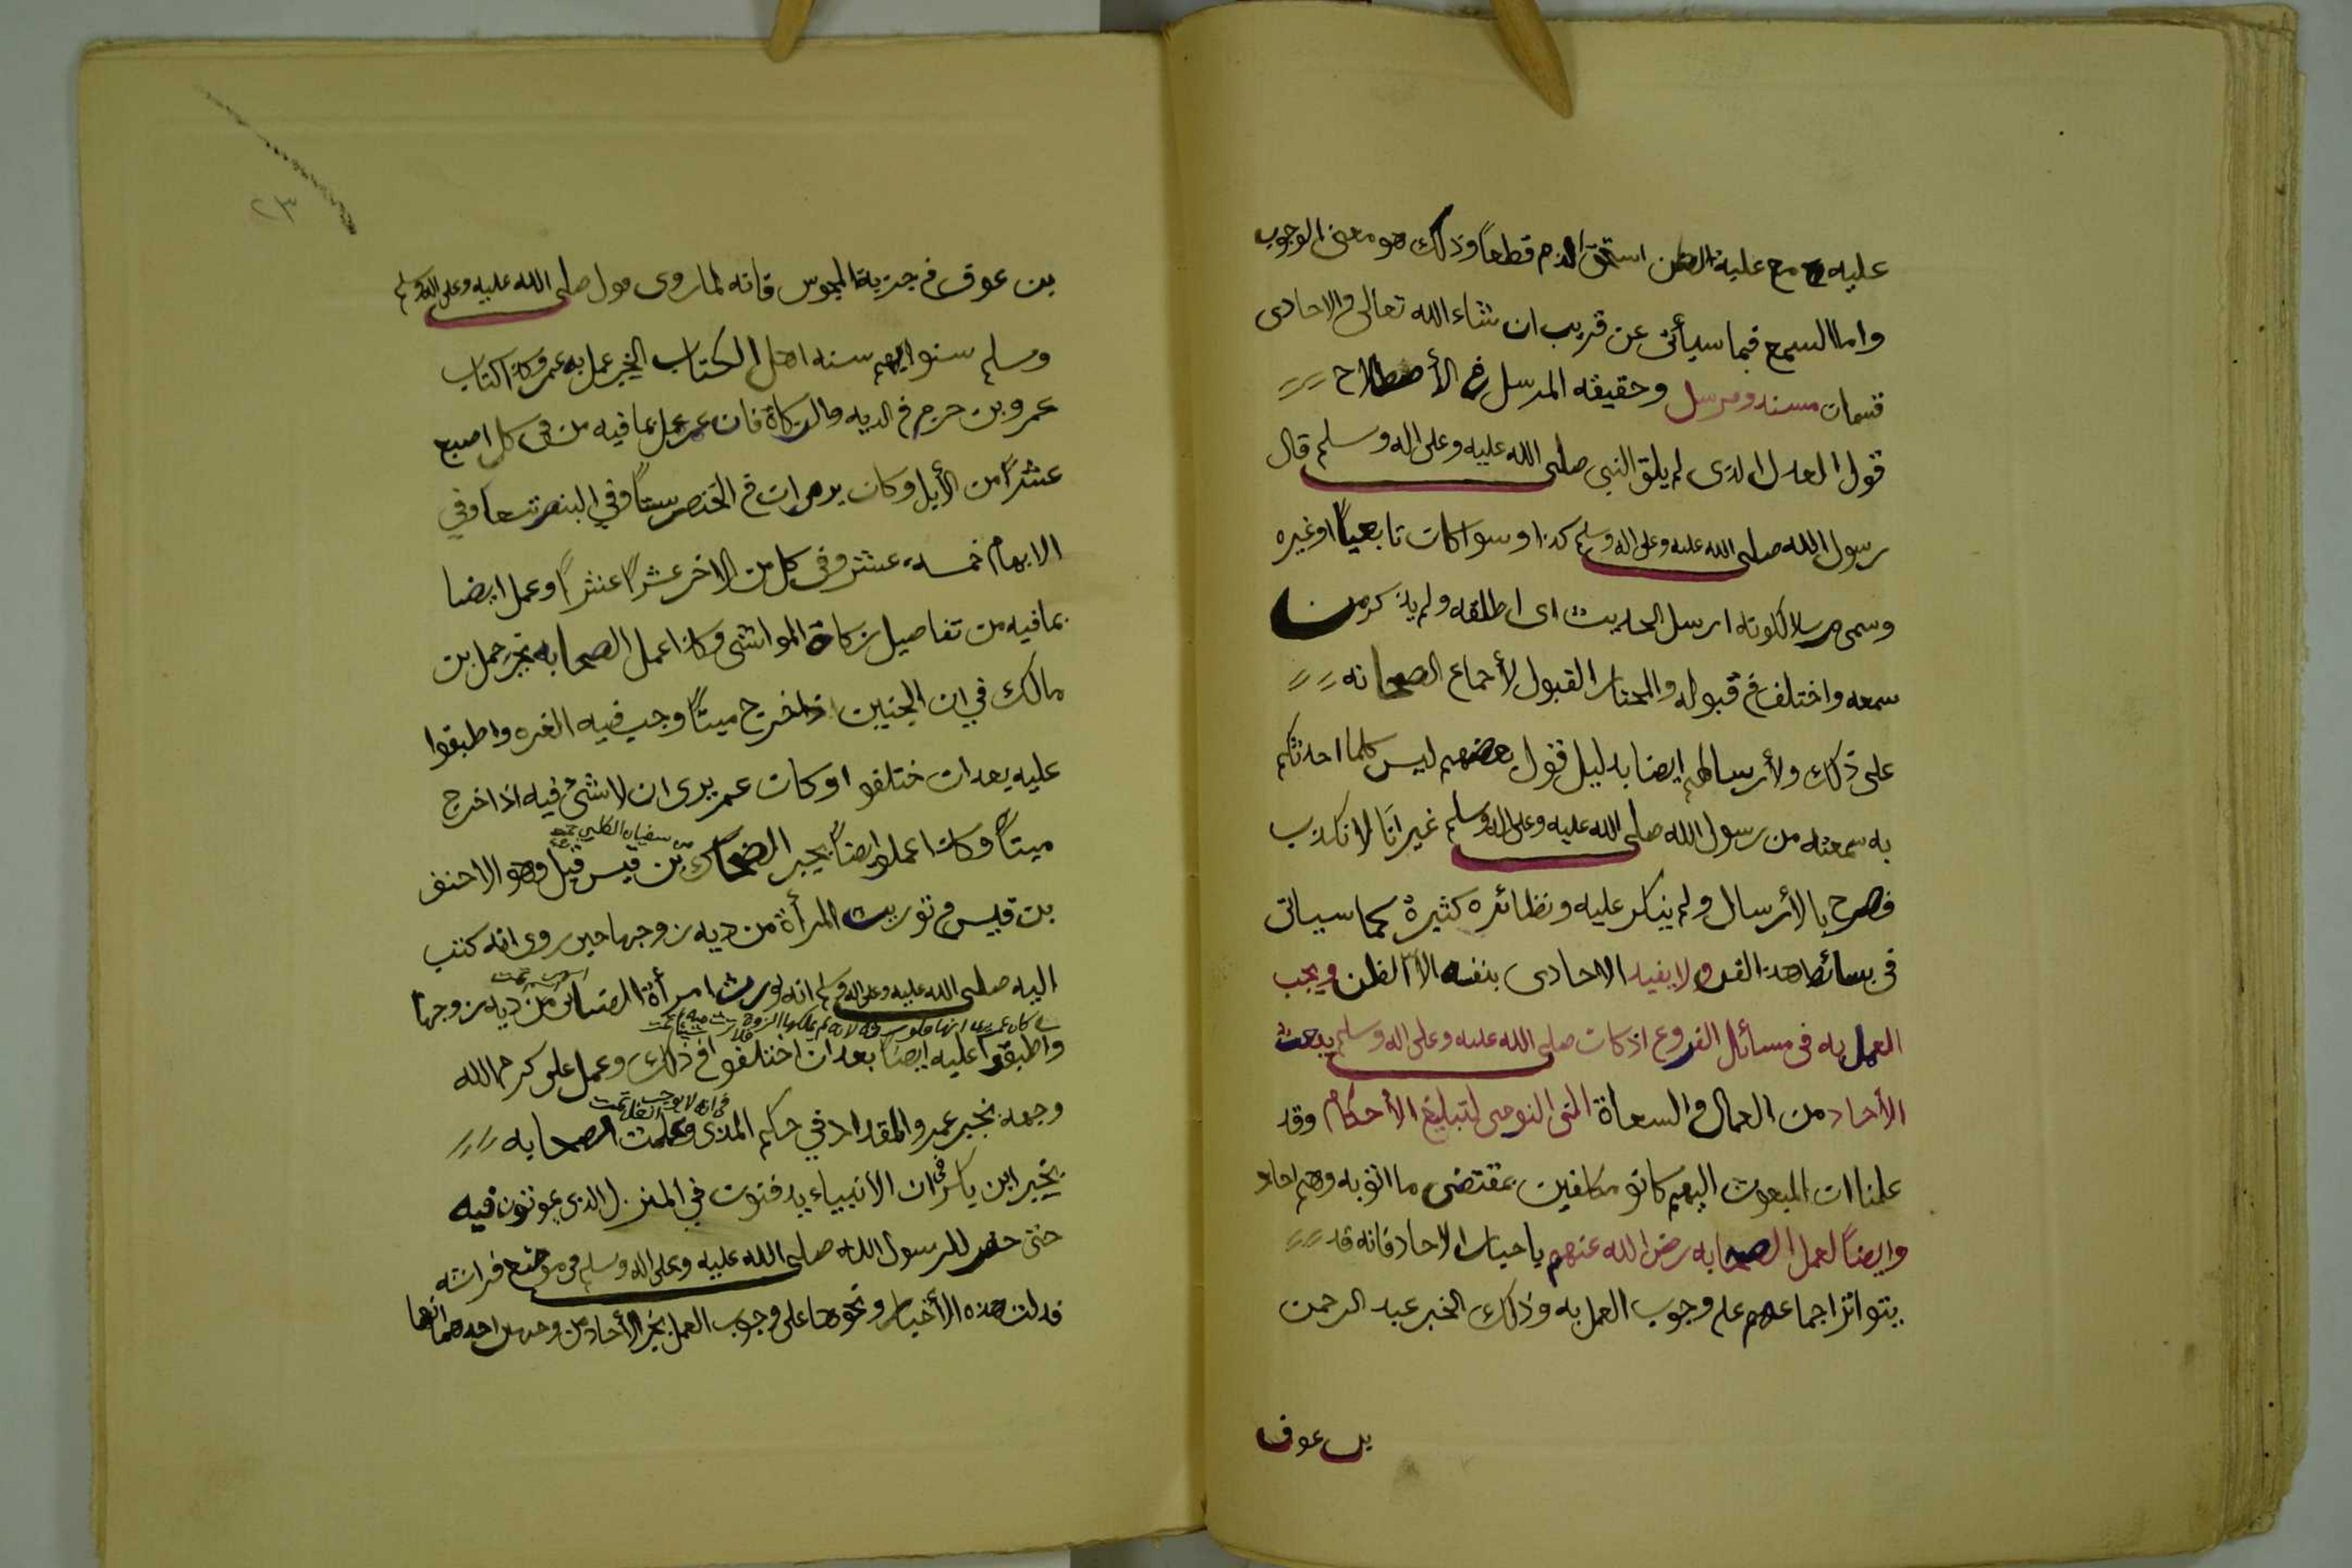 عليه مع علية الظن استحق الذم قطعاً وذلك هو معنى الوجوب
واما السمع فبما سيأتى عن قريب ان شاء الله تعالى والاحادى
قسمان مسند ومرسل وحقيقه المرسل فى الأصطلاح
قول العدل الذى لم يلق النبى صلى الله عليه وعلى اله وسلم قال
رسول الله صلى الله عليه وعلى اله وسلم كذا وسوا كان تابعياً او غيره
وسمى مرسلا لكونه ارسل الحديث اى اطلقه ولم يذكر من
سمعه واختلف فى قبوله والمختار القبول لأجماع الصحابه
على ذلك ولأرسالهم ايضا بدليل قول بعضهم ليس كلما احدثكم
به سمعته من رسول الله صلى الله عليه وعلى اله وسلم غير انّا لا نكذب
فصرح بالأرسال ولم ينكر عليه ونظائره كثيرة كما سياتى
فى بسائط هذا الفن ولا يفيد الاحادى بنفسه الا الظن ويجب
العمل به فى مسائل الفروع اذ كان صلى الله عليه وعلى اله وسلم يبعث
الأحاد من العمال والسعاة الى النوحى لتبليغ الأحكام وقد
علمنا ان المبعوث اليهم كانو مكلفين بمقتضى ما اتو به وهم احاد
وايضاً لعمل الصحابه رضى الله عنهم باخبار الاحاد فانه قد
يتواتر اجماعهم على وجوب العمل به وذلك الخبر عبد الرحمن
بن عوف
٢٣
بن عوف فى جزية المجوس فانه لما روى قول صلى الله عليه وعلى اله وسلم
وسلم سنوا بهم سنه اهل الكتاب الخبر عمل به عمر وكذا كتاب
عمرو بن حزم فى الديه والزكاة فان عمر عمل بما فيه من فى كل اصبع
عشراً من الأبل وكان يرى ان فى الخنصر ستاً وفي البنصر تسعاً وفي
الابهام خمسه عشر وفى كل من الاخر عشراً عشراً وعمل ايضا
بما فيه من تفاصيل زكاة المواشى وكذا عمل الصحابه بخبر حمل بن
مالك في ان الجنين اذا خرج ميتاً وجب فيه الغره واطبقوا
عليه بعد ان ختلفو او كان عمر يرى ان لا شئ فيه اذا خرج
ميتاً وكذا عملو ايضاً بخبر الضحاك بن قيس قيل وهو الاحنف
بن سفيان الكلبي
بن قيس فى توريث المرأة من ديه زوجها حين روى انه كتب
اليه صلى الله عليه وعلى اله وسلم انه يورث امرأة الضبابى من ديه زوجها
واطبقوا عليه ايضاً بعد ان اختلفو فى ذلك وعمل على كرم الله
وجهه بخبر عمر والمقداد في حكم المذى وعملت الصحابه
فى انه لا يوجب الغسل تمت
بخبر ابى بكر فى ان الأنبياء يدفنون في المنزل الذى يموتون فيه
حتى حفر للرسول الله صلى الله عليه وعلى اله وسلم فى موضع فراشه
فدلت هذه الأخبار ونحوها على وجوب العمل بخبر الأحاد من وجهين احدهما انها